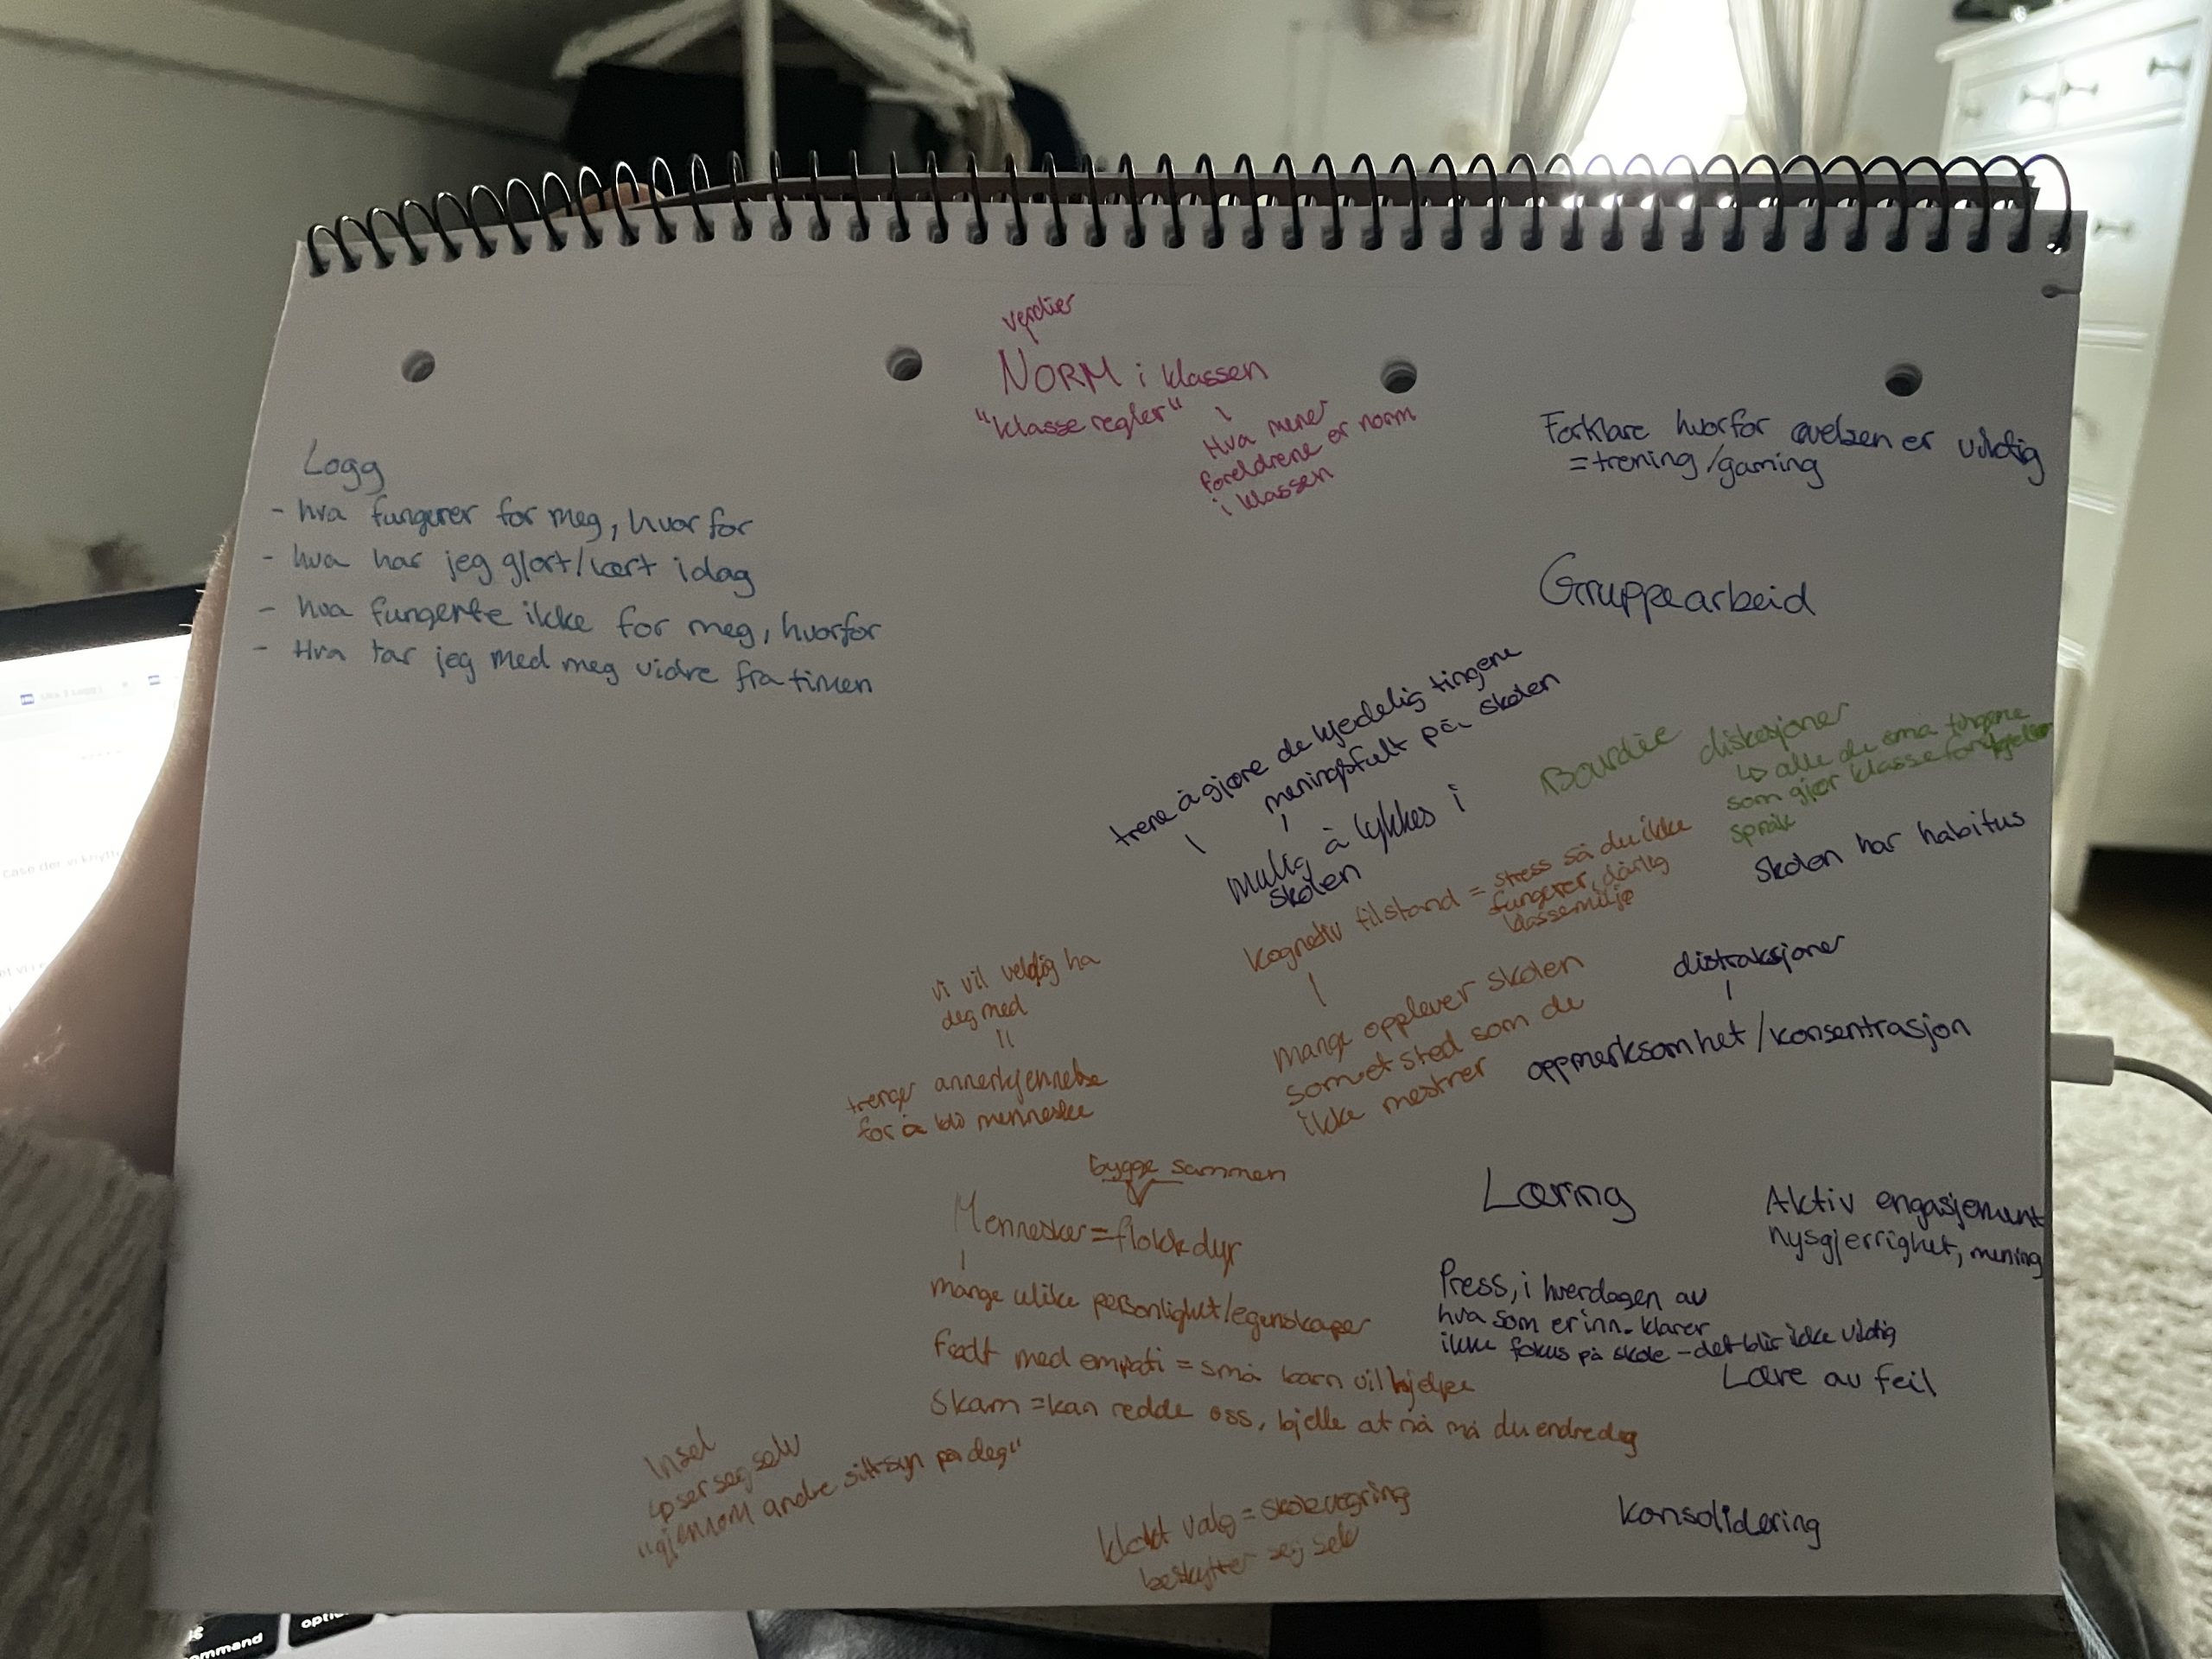 verdier
NORM i klassen
"klasse regler"
Hva mener
foreldrene er norm
i klassen
Logg
- hva fungerer for meg, hvorfor
- hva har jeg gjort/lært idag
- hva fungerte ikke for meg, hvorfor
- Hva tar jeg med meg vidre fra timen
Forklare hvorfor øvelsen er viktig
= trening/gaming
Gruppearbeid
trene å gjøre de kjedelig tingene
meningsfult på skolen
å lykkes i
skolen
Bourdie diskusjoner
↳ alle de små tingene
som gjør
språk
Skolen har habitus
Kognitiv tilstand = stress så du ikke
fungerer, dårlig
klassemiljø
mange opplever skolen
som et sted som de
ikke mestrer
distraksjoner
oppmerksomhet/konsentrasjon
vi vil veldig ha
deg med
=
trenger annerkjennelse
for å bli menneske
bygge sammen
Mennesker = flokkdyr
mange ulike personlighet/egenskaper
Født med empati = små barn vil hjelpe
Skam = kan redde oss, bjelle at nå må du endre deg
Insel
↳ ser seg selv
"gjennom andre sitt syn på deg"
klokt valg = skolevegring
beskytter seg selv
Læring
Aktiv engasjement
nysgjerrighet, mening
Press, i hverdagen av
hva som er inn. klarer
ikke fokus på skole - det blir ikke viktig
Lære av feil
Konsolidering
command